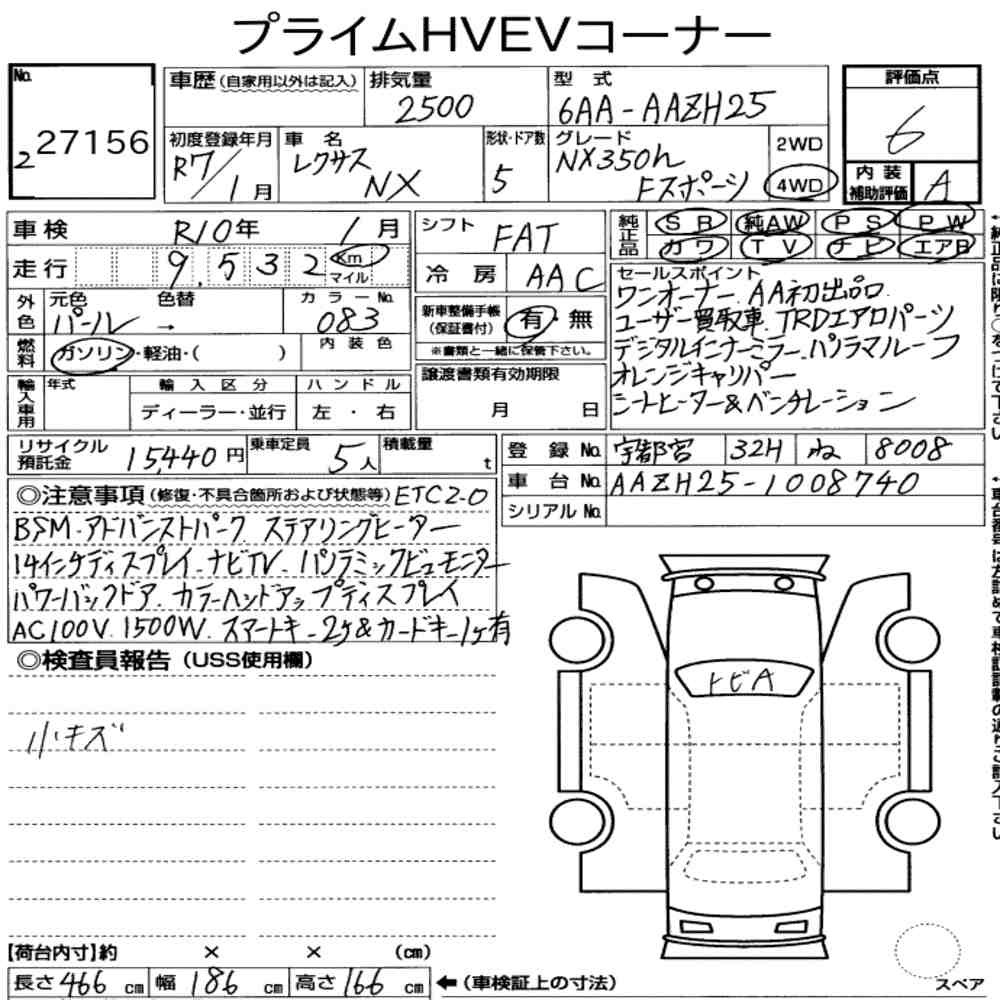 プライムHVEVコーナー
No. 2 27156
車歴（自家用以外は記入） 排気量 2500 型式 6AA-AAZH25 評価点 6
初度登録年月 R7/1月 車名 レクサス NX 形状・ドア数 5 グレード NX350h Fスポーツ 2WD 4WD 内装補助評価 A
車検 R10年 1月 シフト FAT 純正品 SR 純AW PS PW
走行 9,532 Km マイル 冷房 AAC カワ TV ナビ エアB
外色 元色 パール 色替 → カラーNo. 083
新車整備手帳（保証書付） 有・無
※書類と一緒に保管下さい。
燃料 ガソリン・軽油・（　） 内装色
輸入車用 年式 輸入区分 ハンドル
ディーラー・並行 左・右
譲渡書類有効期限
月 日
セールスポイント
ワンオーナー AA初出品
ユーザー買取車 TRDエアロパーツ
デジタルインナーミラー パノラマルーフ
オレンジキャリパー
シートヒーター&ベンチレーション
リサイクル預託金 15,440円 乗車定員 5人 積載量 t
登録No. 宇都宮 32H ね 8008
車台No. AAZH25-1008740
シリアルNo.
◎注意事項（修復・不具合箇所および状態等）ETC2.0
BSM・アドバンストパーク ステアリングヒーター
14インチディスプレイ ナビTV. パノラミックビューモニター
パワーバックドア. カラーヘッドアップディスプレイ
AC100V. 1500W. スマートキー2ヶ&カードキー1ヶ有
◎検査員報告（USS使用欄）
小キズ
トビA
【荷台内寸】約 × × (cm)
長さ 466 cm 幅 186 cm 高さ 166 cm ←（車検証上の寸法） スペア